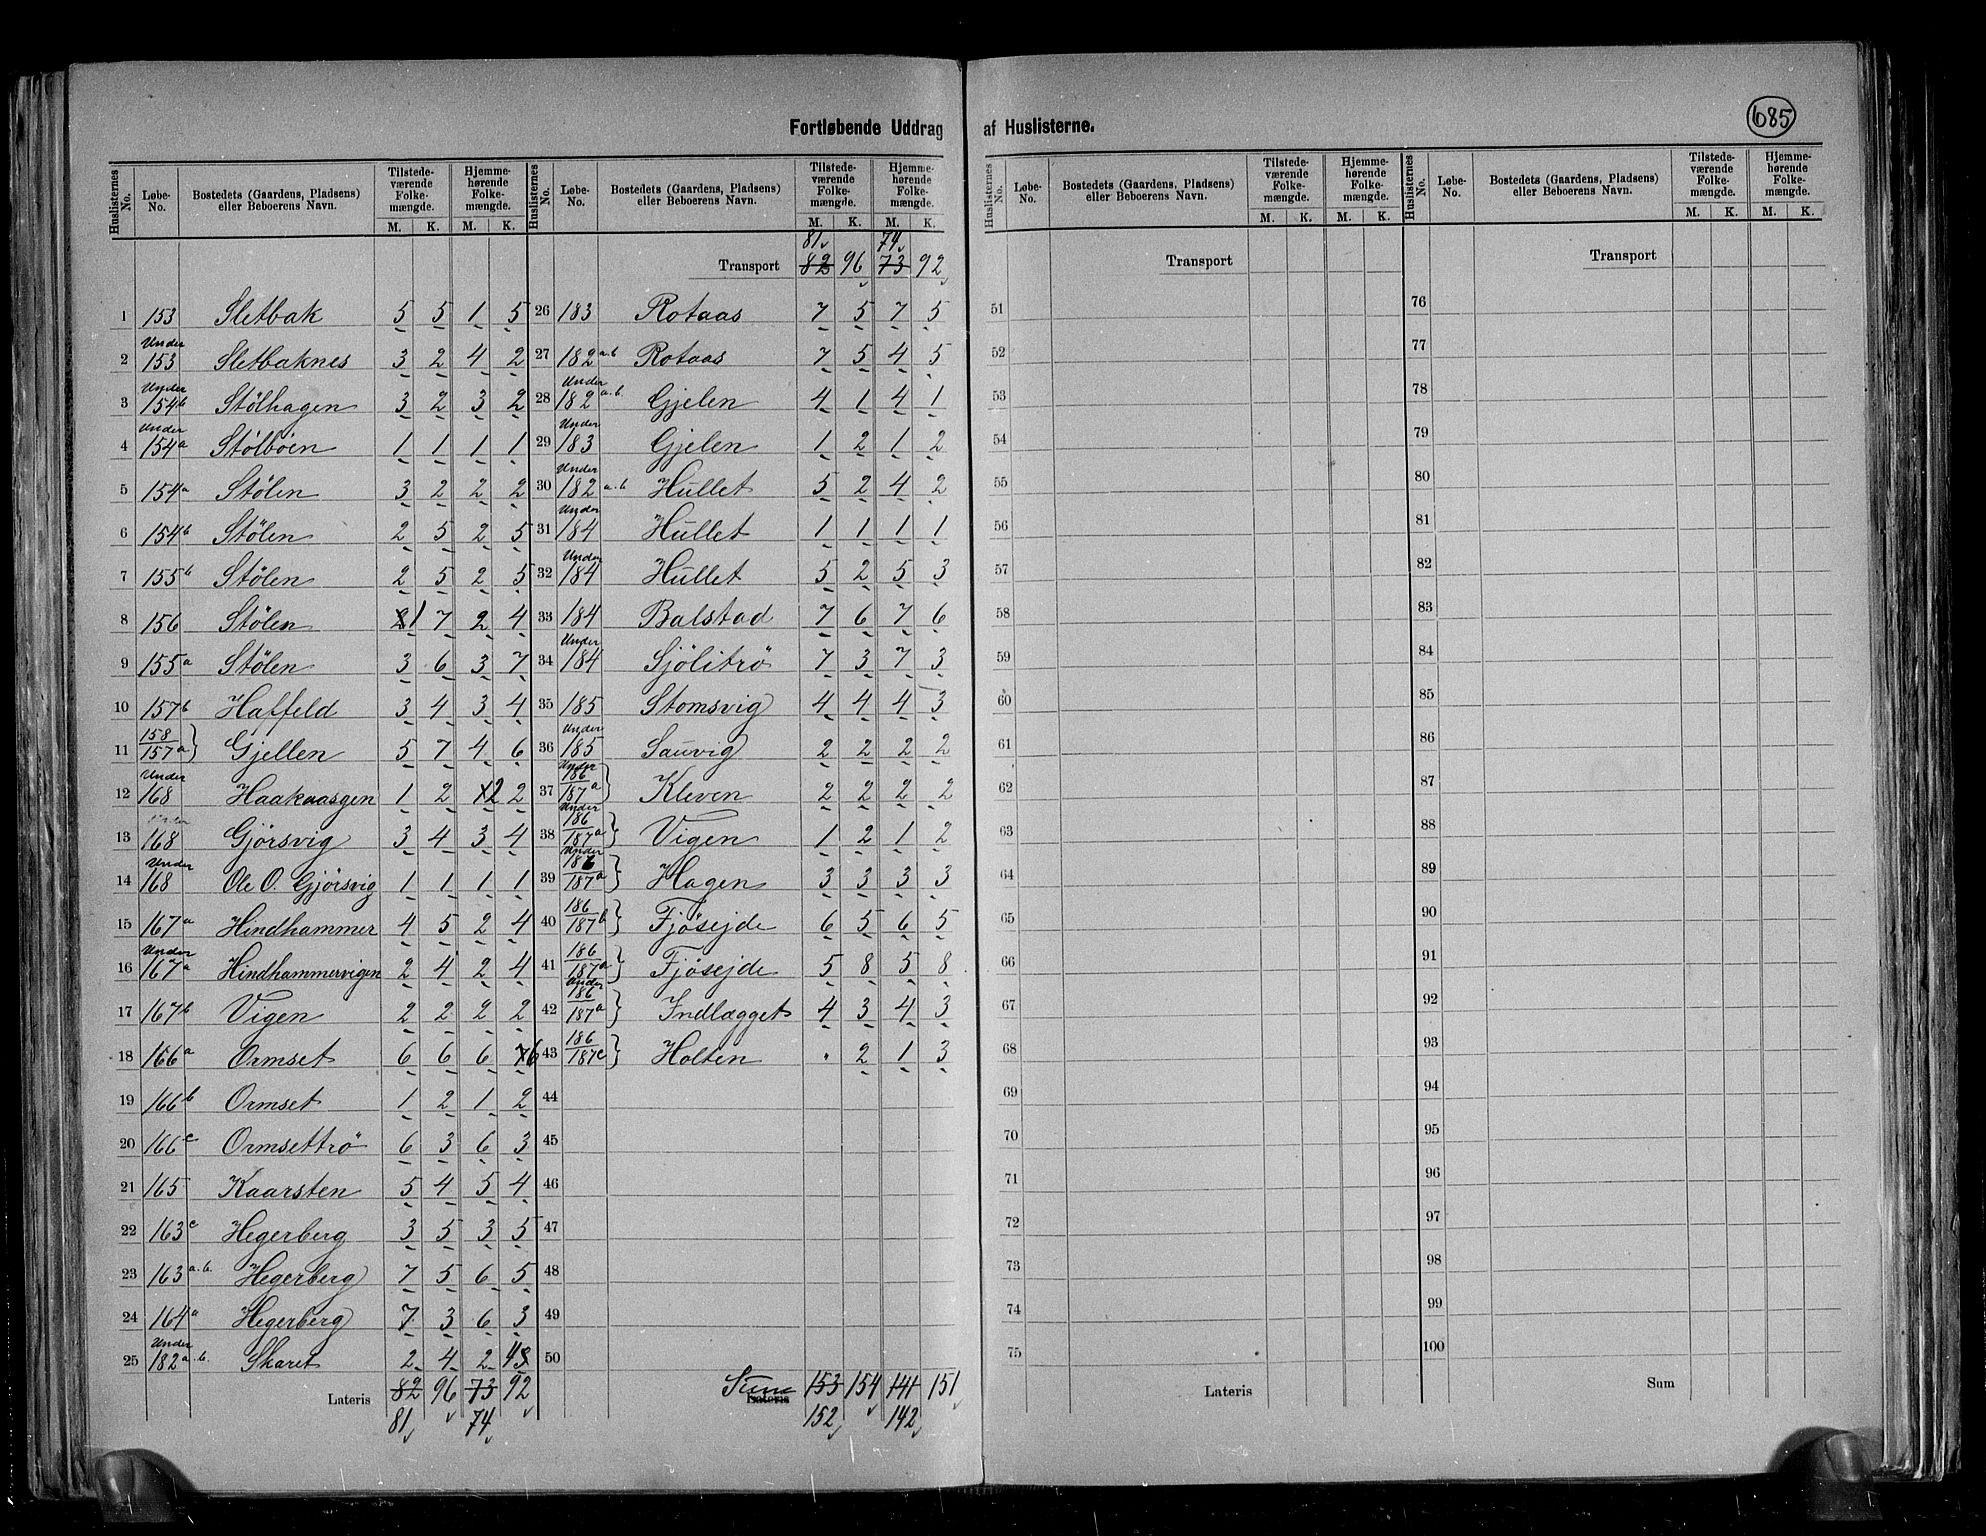 685
Fortløbende Uddrag af Huslisterne.
Huslisternes No. Løbe-No. Bostedets (Gaardens, Pladsens) eller Beboerens Navn. Tilstedeværende Folkemængde. M. K. Hjemmehørende Folkemængde. M. K.
1 153 Sletbak 5 5 1 5
2 Under 153 Sletbaknes 3 2 4 2
3 Under 154b Stølhagen 3 2 3 2
4 Under 154a Stølböen 1 1 1 1
5 154a Stølen 3 2 2 2
6 154b Stølen 2 5 2 5
7 155b Stølen 2 5 2 5
8 156 Stølen 1 7 2 4
9 155a Stølen 3 6 3 7
10 157b Haffeld 3 4 3 4
11 158 157a } Gjellen 5 7 4 6
12 Under 168 Haakaasgen 1 2 2 2
13 Under 168 Gjørsvig 3 4 3 4
14 Under 168 Ole O. Gjørsvig 1 1 1 1
15 167a Hindhammer 4 5 2 4
16 Under 167a Hindhammervigen 2 4 2 4
17 167b Vigen 2 2 2 2
18 166a Ormset 6 6 6 6
19 166b Ormset 1 2 1 2
20 166c Ormsettrö 6 3 6 3
21 165 Kaarsten 5 4 5 4
22 163c Hegerberg 3 5 3 5
23 163a.b. Hegerberg 7 5 6 5
24 164a Hegerberg 7 3 6 3
25 Under 182a.b. Skaret 2 4 2 4
Lateris 82 96 73 92
81 74
Huslisternes No. Løbe-No. Bostedets (Gaardens, Pladsens) eller Beboerens Navn. Tilstedeværende Folkemængde. M. K. Hjemmehørende Folkemængde. M. K.
81 74
Transport 82 96 73 92
26 183 Rotaas 7 5 7 5
27 182a.b Rotaas 7 5 4 5
28 Under 182a.b. Gjelen 4 1 4 1
29 Under 183 Gjelen 1 2 1 2
30 Under 182a.b Hullet 5 2 4 2
31 Under 184 Hullet 1 1 1 1
32 Under 184 Hullet 5 2 5 3
33 184 Balstad 7 6 7 6
34 Under 184 Sjölitrö 7 3 7 3
35 185 Stomsvig 4 4 4 3
36 Under 185 Sauvig 2 2 2 2
37 Under 186 187a } Kleven 2 2 2 2
38 Under 186 187a } Vigen 1 2 1 2
39 Under 186 187a } Hagen 3 3 3 3
40 186 187b } Fjösejde 6 5 6 5
41 186 187a } Fjösejde 5 8 5 8
42 Under 186 187a } Indlægget 4 3 4 3
43 186 187c } Holten " 2 1 3
44
45
46
47
48
49
50
Sum Lateris 153 154 141 151
152 142
Huslisternes No. Løbe-No. Bostedets (Gaardens, Pladsens) eller Beboerens Navn. Tilstedeværende Folkemængde. M. K. Hjemmehørende Folkemængde. M. K.
Transport
51
52
53
54
55
56
57
58
59
60
61
62
63
64
65
66
67
68
69
70
71
72
73
74
75
Lateris
Huslisternes No. Løbe-No. Bostedets (Gaardens, Pladsens) eller Beboerens Navn. Tilstedeværende Folkemængde. M. K. Hjemmehørende Folkemængde. M. K.
Transport
76
77
78
79
80
81
82
83
84
85
86
87
88
89
90
91
92
93
94
95
96
97
98
99
100
Sum